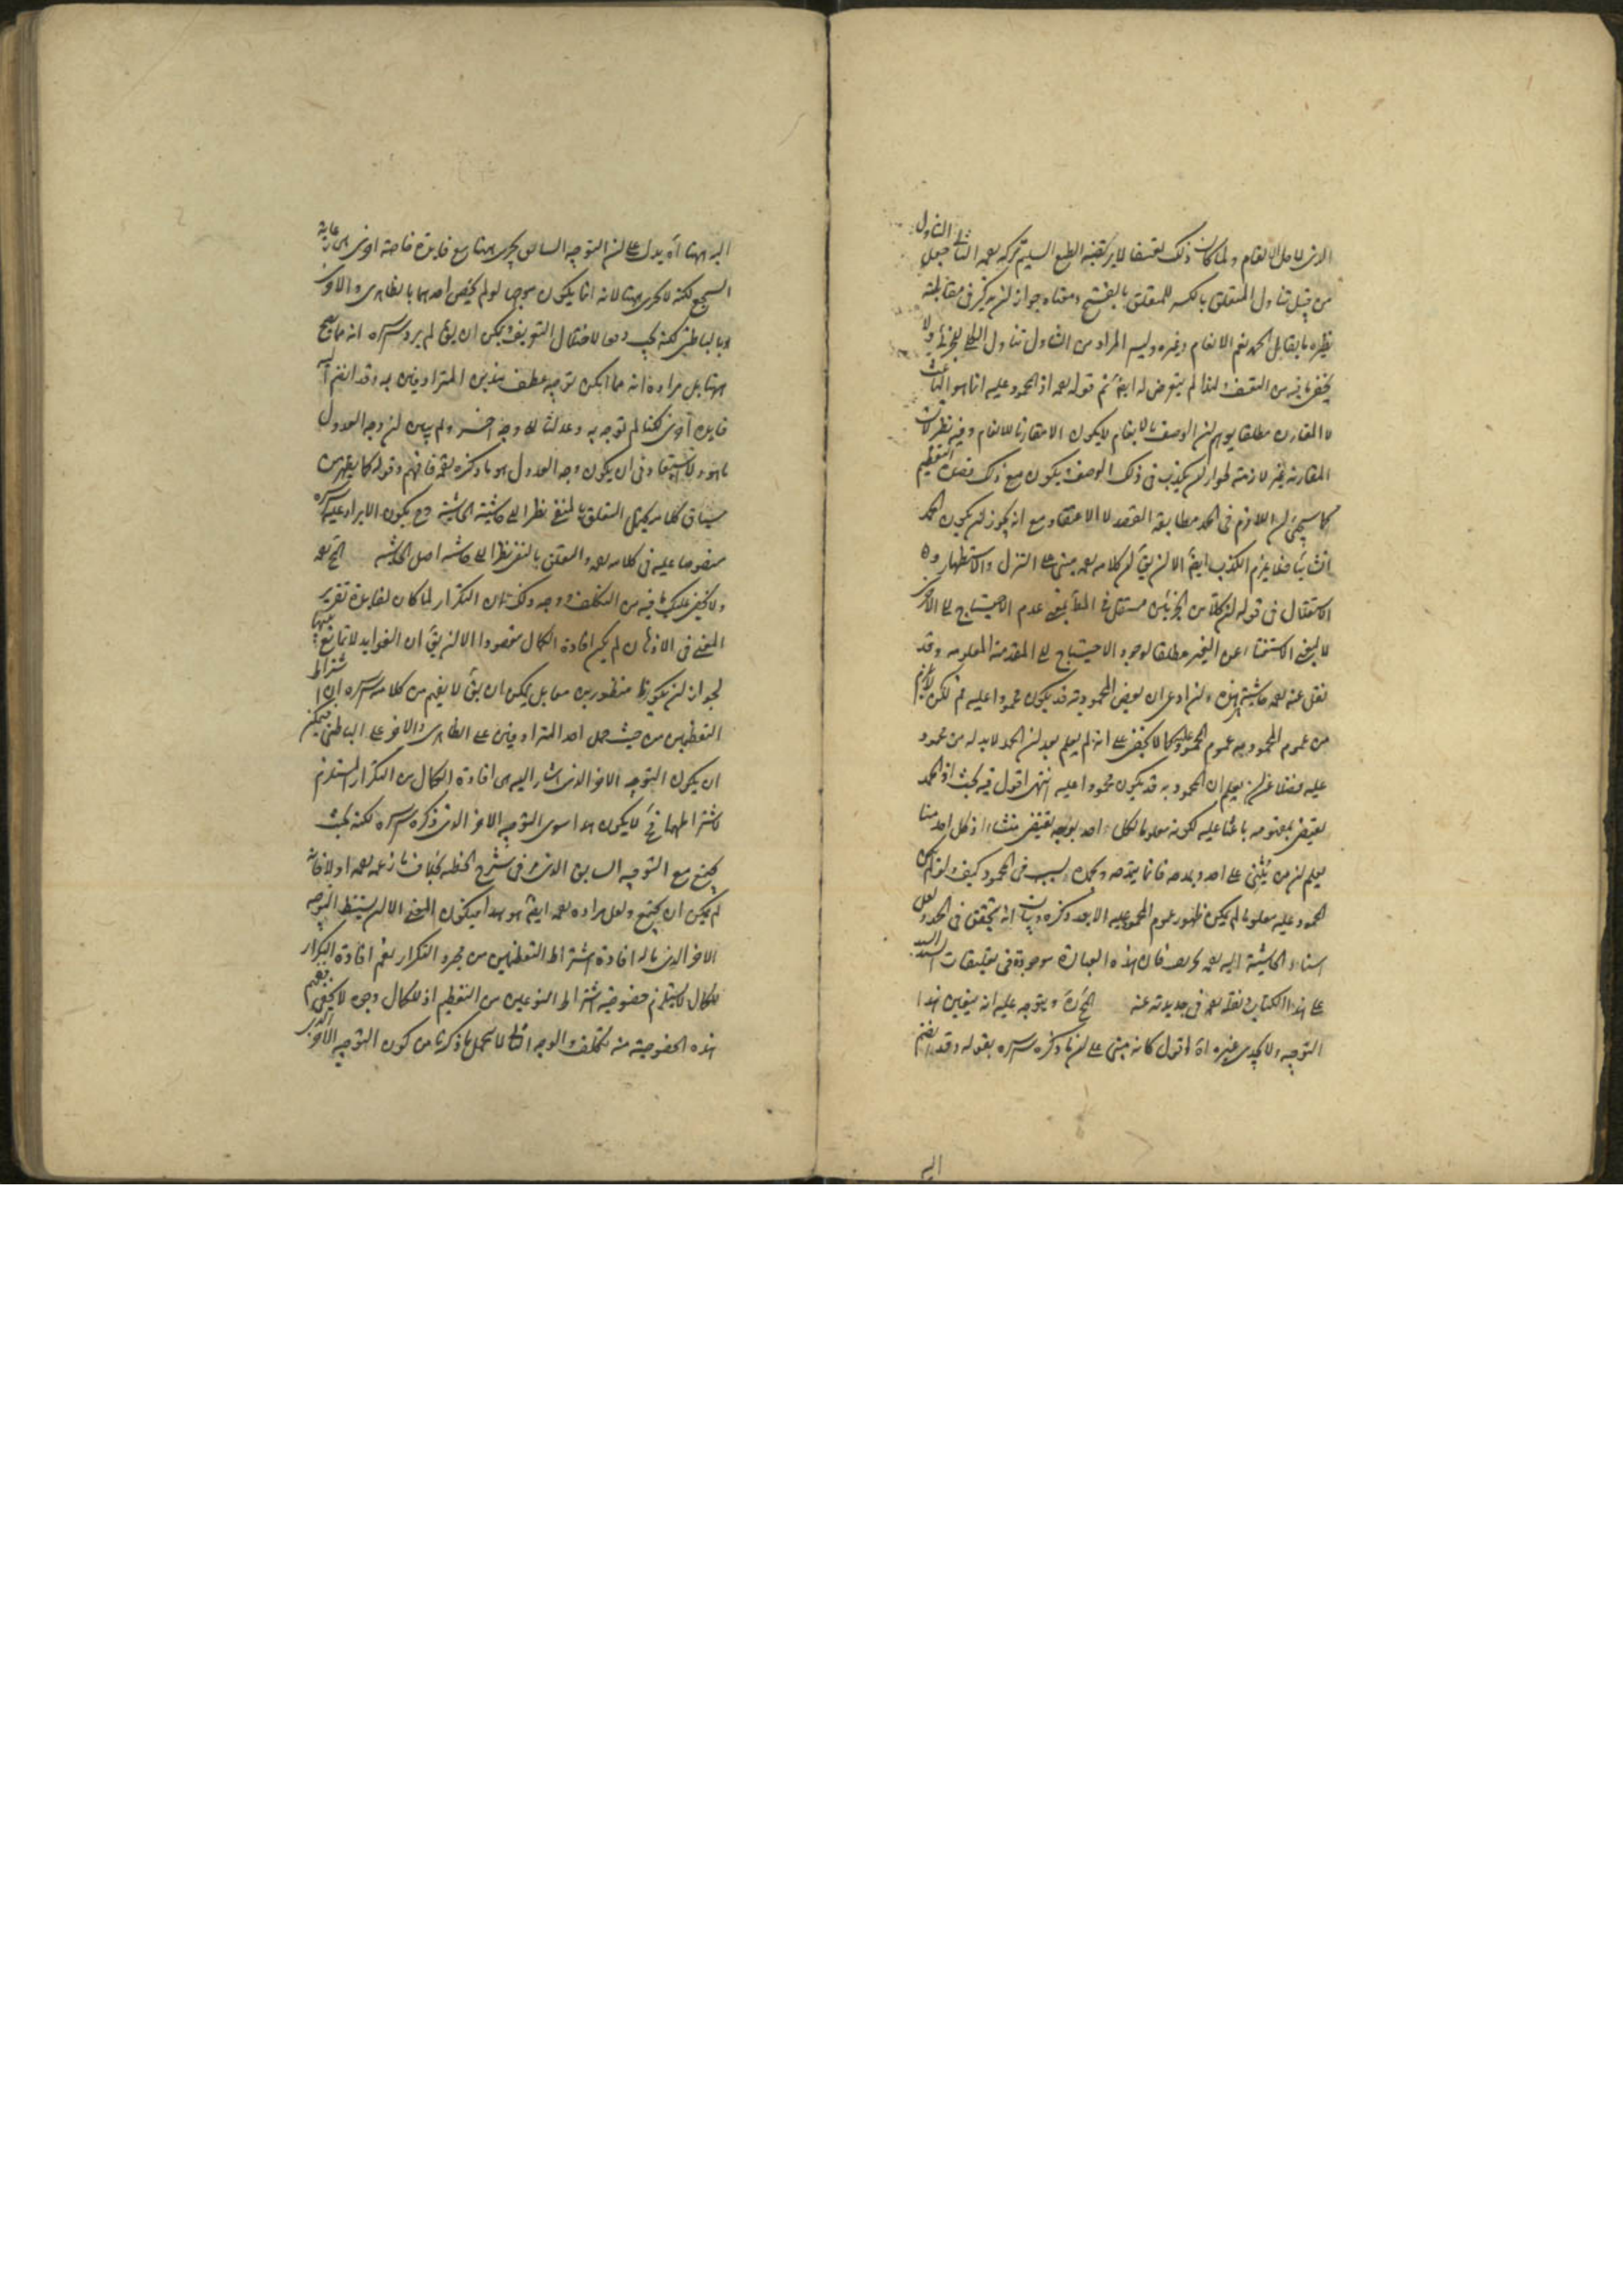 الذي لاجل الانعام ولما كان ذلك تعسفا لا يرتضيه الطبع السليم تركه بعد التأمل جعل التناول
من قبيل تناول المتعلق بالكسر للمتعلق بالفتح ومعناه جواز ان يذكر في مقابلته
نظيره ما يقابل الحمد نعم الانعام وغيره وليس المراد من التناول تناول الكلي للجزئي ولا
يخفى ما فيه من التعسف لم يتعرض له ايضا ثم قوله بعد اذ المحمود عليه انما هو الباعث
لا المقارن مطلقا يوهم ان الوصف بالانعام لا يكون الا مقارنا للانعام وفيه نظر لان
المقارنة غير لازمة لجواز ان يكذب في ذلك الوصف ويكون مع ذلك قصد التعظيم
كما سيجئ ان اللازم في الحمد مطابقة القصد لا الاعتقاد مع انه يجوز ان يكون الحمد
انشائيا فلا يلزم الكذب ايضا الا ان يق ان كلامه بعد مبنى على التنزل والاستظهار
الاستقلال في قوله ان كلا من الجزئين مستقل في بمعنى عدم الاحتياج الى الاخر
لا بمعنى الاستغناء عن الغير مطلقا لوجود الاحتياج الى المقدمة المعلومة وقد
نقل عنه بعد حاشية هذه وان ادعى ان بعض المحمود به قد يكون محمودا عليه ثم لكن لا يلزم
من عموم المحمود به عموم المحمود عليه كما لا يخفى على انه لم يعلم بعد ان الحمد لابد له من محمود
عليه فضلا عن ان يعلم ان المحمود به قد يكون محمودا عليه انتهى اقول فيه بحث اذ الحمد
يقتضى بمفهومه باعثا عليه لكونه معلوما لكل احد بوجه يقتضى منشاء اذ كل احد منا
يعلم ان من يثنى على احد ويمدحه فانما يمدحه ويحمده بسبب في المحمود كيف ولو لم يكن
المحمود عليه معلوما لم يكن ظهور عموم المحمود عليه الا بعد ذكره وبيان انه يتحقق في الحمد ولعل
اسناد الحاشية اليه بعد تحريف فان هذه العبارة موجودة في تعليقات السيد السند
على هذا الكتاب ونقله بعد في جديدته عنه ويتوجه عليه انه يتعين هذا
التوجيه ولا يجدى غيره اه اقول كانه مبنى على ان ما ذكره سره بقوله وقد انضم
اليه
اليه ههنا اه يدل على ان التوجيه السابق يجرى ههنا مع فايدة خاصة اخرى هى رعاية
السجع لكنه لا يجرى ههنا لانه انما يكون موجها لو لم يخص احدهما بالظاهرى والاخرى
بالباطنى لكنه يجب دفعا لاختلال التعريف ويمكن ان يق لم يرد سره انه مما يصح
ههنا بل مراده انه مما يمكن توجيه عطف هذين المترادفين به وقد انضم اليه
فايدة اخرى لكنا لم نوجه به وعدلنا الى وجه اخر ولم يبين ان وجه العدول
ما هو ولا استبعاد في ان يكون وجه العدول هو ما ذكره بعد فافهم وقوله كما يظهر من
سياق كلامه يحتمل التعلق بالمنفى نظرا الى حاشية الحاشية وح يكون الايراد عليه سره
منصوصا عليه في كلامه بعد والتعلق بالنفى نظرا الى حاشيه اصل الحاشيه
ولا يخفى عليك ما فيه من التكلف ووجه ذلك ان التكرار لما كان لفايدة تقرير
المعنى في الاذهان لم يكن افادة الكمال مقصودا الا ان يق ان الفوايد لا تمانع بينها
لجواز ان يكونا منظورين معا بل يمكن ان يق لا يفهم من كلامه سره ان اشتراط
التعظيمين من حيث حمل احد المترادفين على الظاهرى والاخر على الباطنى فيمكن
ان يكون التوجيه الاخر الذى اشار اليه هى افادة الكمال من التكرار المستلزم
لاشتراطهما فح لا يكون هذا سوى التوجيه الاخر الذى ذكره سره لكنه بحيث
يجتمع مع التوجيه السابق الذى في شرح الخطبة بخلاف ما زعمه بعد اولا فانه
لم يمكن ان يجتمع ولعل مراده بعد ايضا هو هذا فيكون المعنى الا ان يستنبط التوجيه
الاخر الذى ماله افادة اشتراط التعظيمين من مجرد التكرار نعم افادة التكرار
للكمال لا يستلزم خصوصية اشتراط النوعين من التعظيم اذ للكمال وجوه لا يخفى ففهم
هذه الخصوصية منه تكلف والوجه لا يحتمل ما ذكرنا من كون التوجيه الاخر الذى